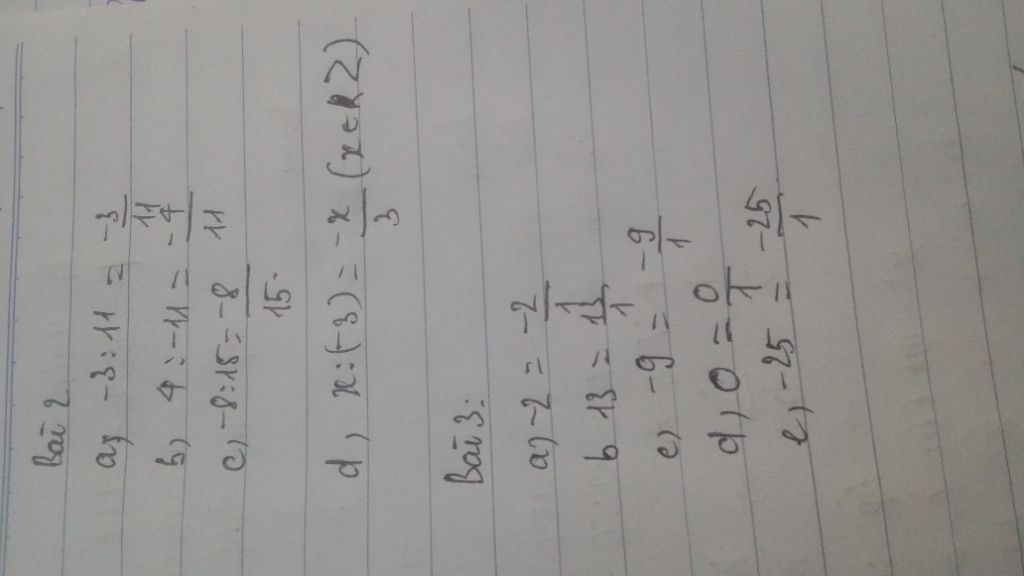 Bài 2
a, -3:11 = -3/11
b, 4:-11 = -4/11
c, -8:15 = -8/15
d, x:(-3) = -x/3 (x ∈ Z)
Bài 3:
a, -2 = -2/1
b 13 = 13/1
c, -9 = -9/1
d, 0 = 0/1
e, -25 = -25/1